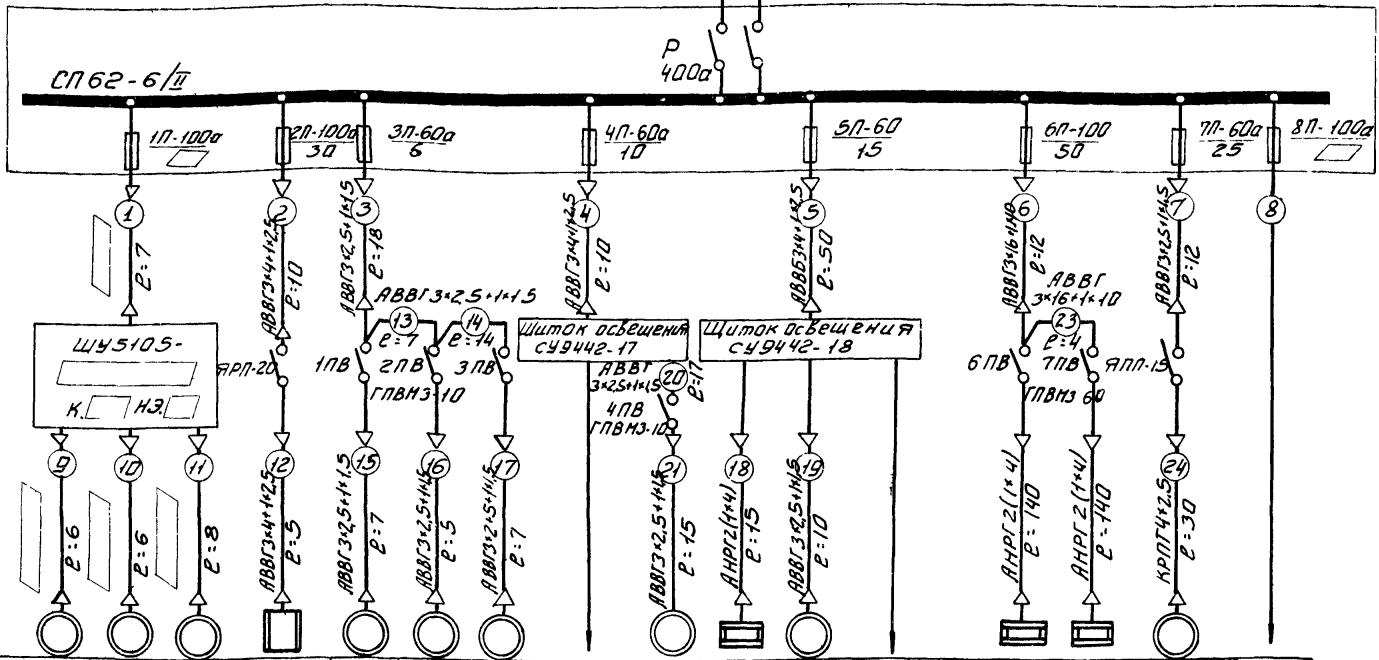 Р
400а
СП62-6/II
1П-100а
2П-100а
30
3П-60а
6
4П-60а
10
5П-60
15
6П-100
50
7П-60а
25
8П-100а
1
2
3
4
5
6
7
8
ℓ=7
АВВГ3×4+1×2,5
ℓ=10
АВВГ3×2,5+1×1,5
ℓ=18
АВВГ3×4+1×2,5
ℓ=10
АВВБ3×4+1×2,5
ℓ=50
АВВГ3×16+1×10
ℓ=12
АВВГ3×2,5+1×1,5
ℓ=12
ШУ5105-
К.
НЭ.
ЯРП-20
АВВГ3×2,5+1×1,5
13
ℓ=7
14
ℓ=14
1ПВ
2ПВ
3ПВ
ГПВМ3-10
Щиток освещения
СУ9442-17
Щиток освещения
СУ9442-18
АВВГ
3×2,5+1×1,5
20
ℓ=17
4ПВ
ГПВМ3-10
АВВГ
3×16+1×10
23
ℓ=4
6ПВ
7ПВ
ГПВМ3 60
ЯПП-15
9
10
11
12
15
16
17
21
18
19
24
ℓ=6
ℓ=6
ℓ=8
АВВГ3×4+1×2,5
ℓ=5
АВВГ3×2,5+1×1,5
ℓ=7
АВВГ3×2,5+1×1,5
ℓ=5
АВВГ3×2,5+1×1,5
ℓ=7
АВВГ3×2,5+1×1,5
ℓ=15
АНРГ2(1×4)
ℓ=15
АВВГ3×2,5+1×1,5
ℓ=10
АНРГ2(1×4)
ℓ=140
АНРГ2(1×4)
ℓ=140
КРПТ4×2,5
ℓ=30